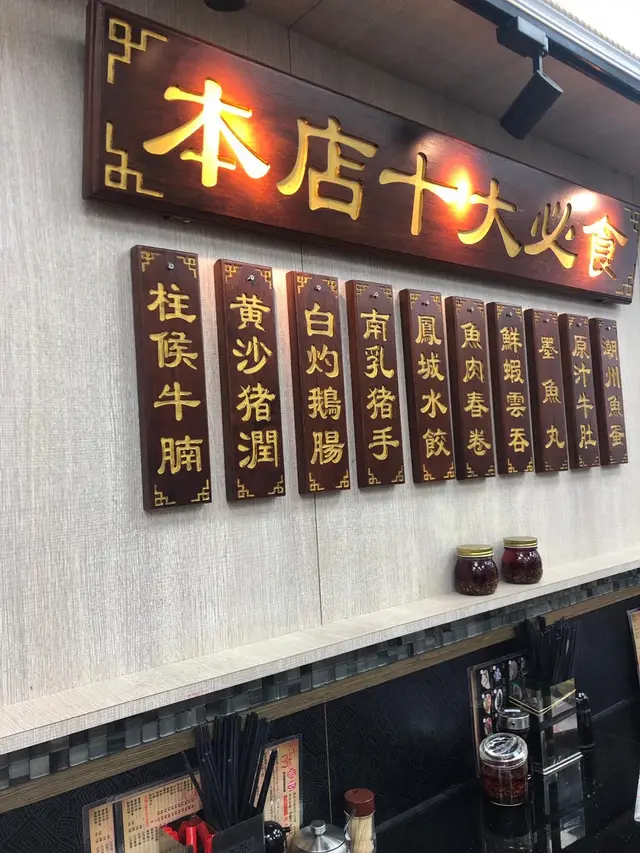 本店十大必食
柱候牛腩
黃沙猪潤
白灼鵝腸
南乳猪手
鳳城水餃
魚肉春卷
鮮蝦雲吞
墨魚丸
原汁牛肚
潮州魚蛋